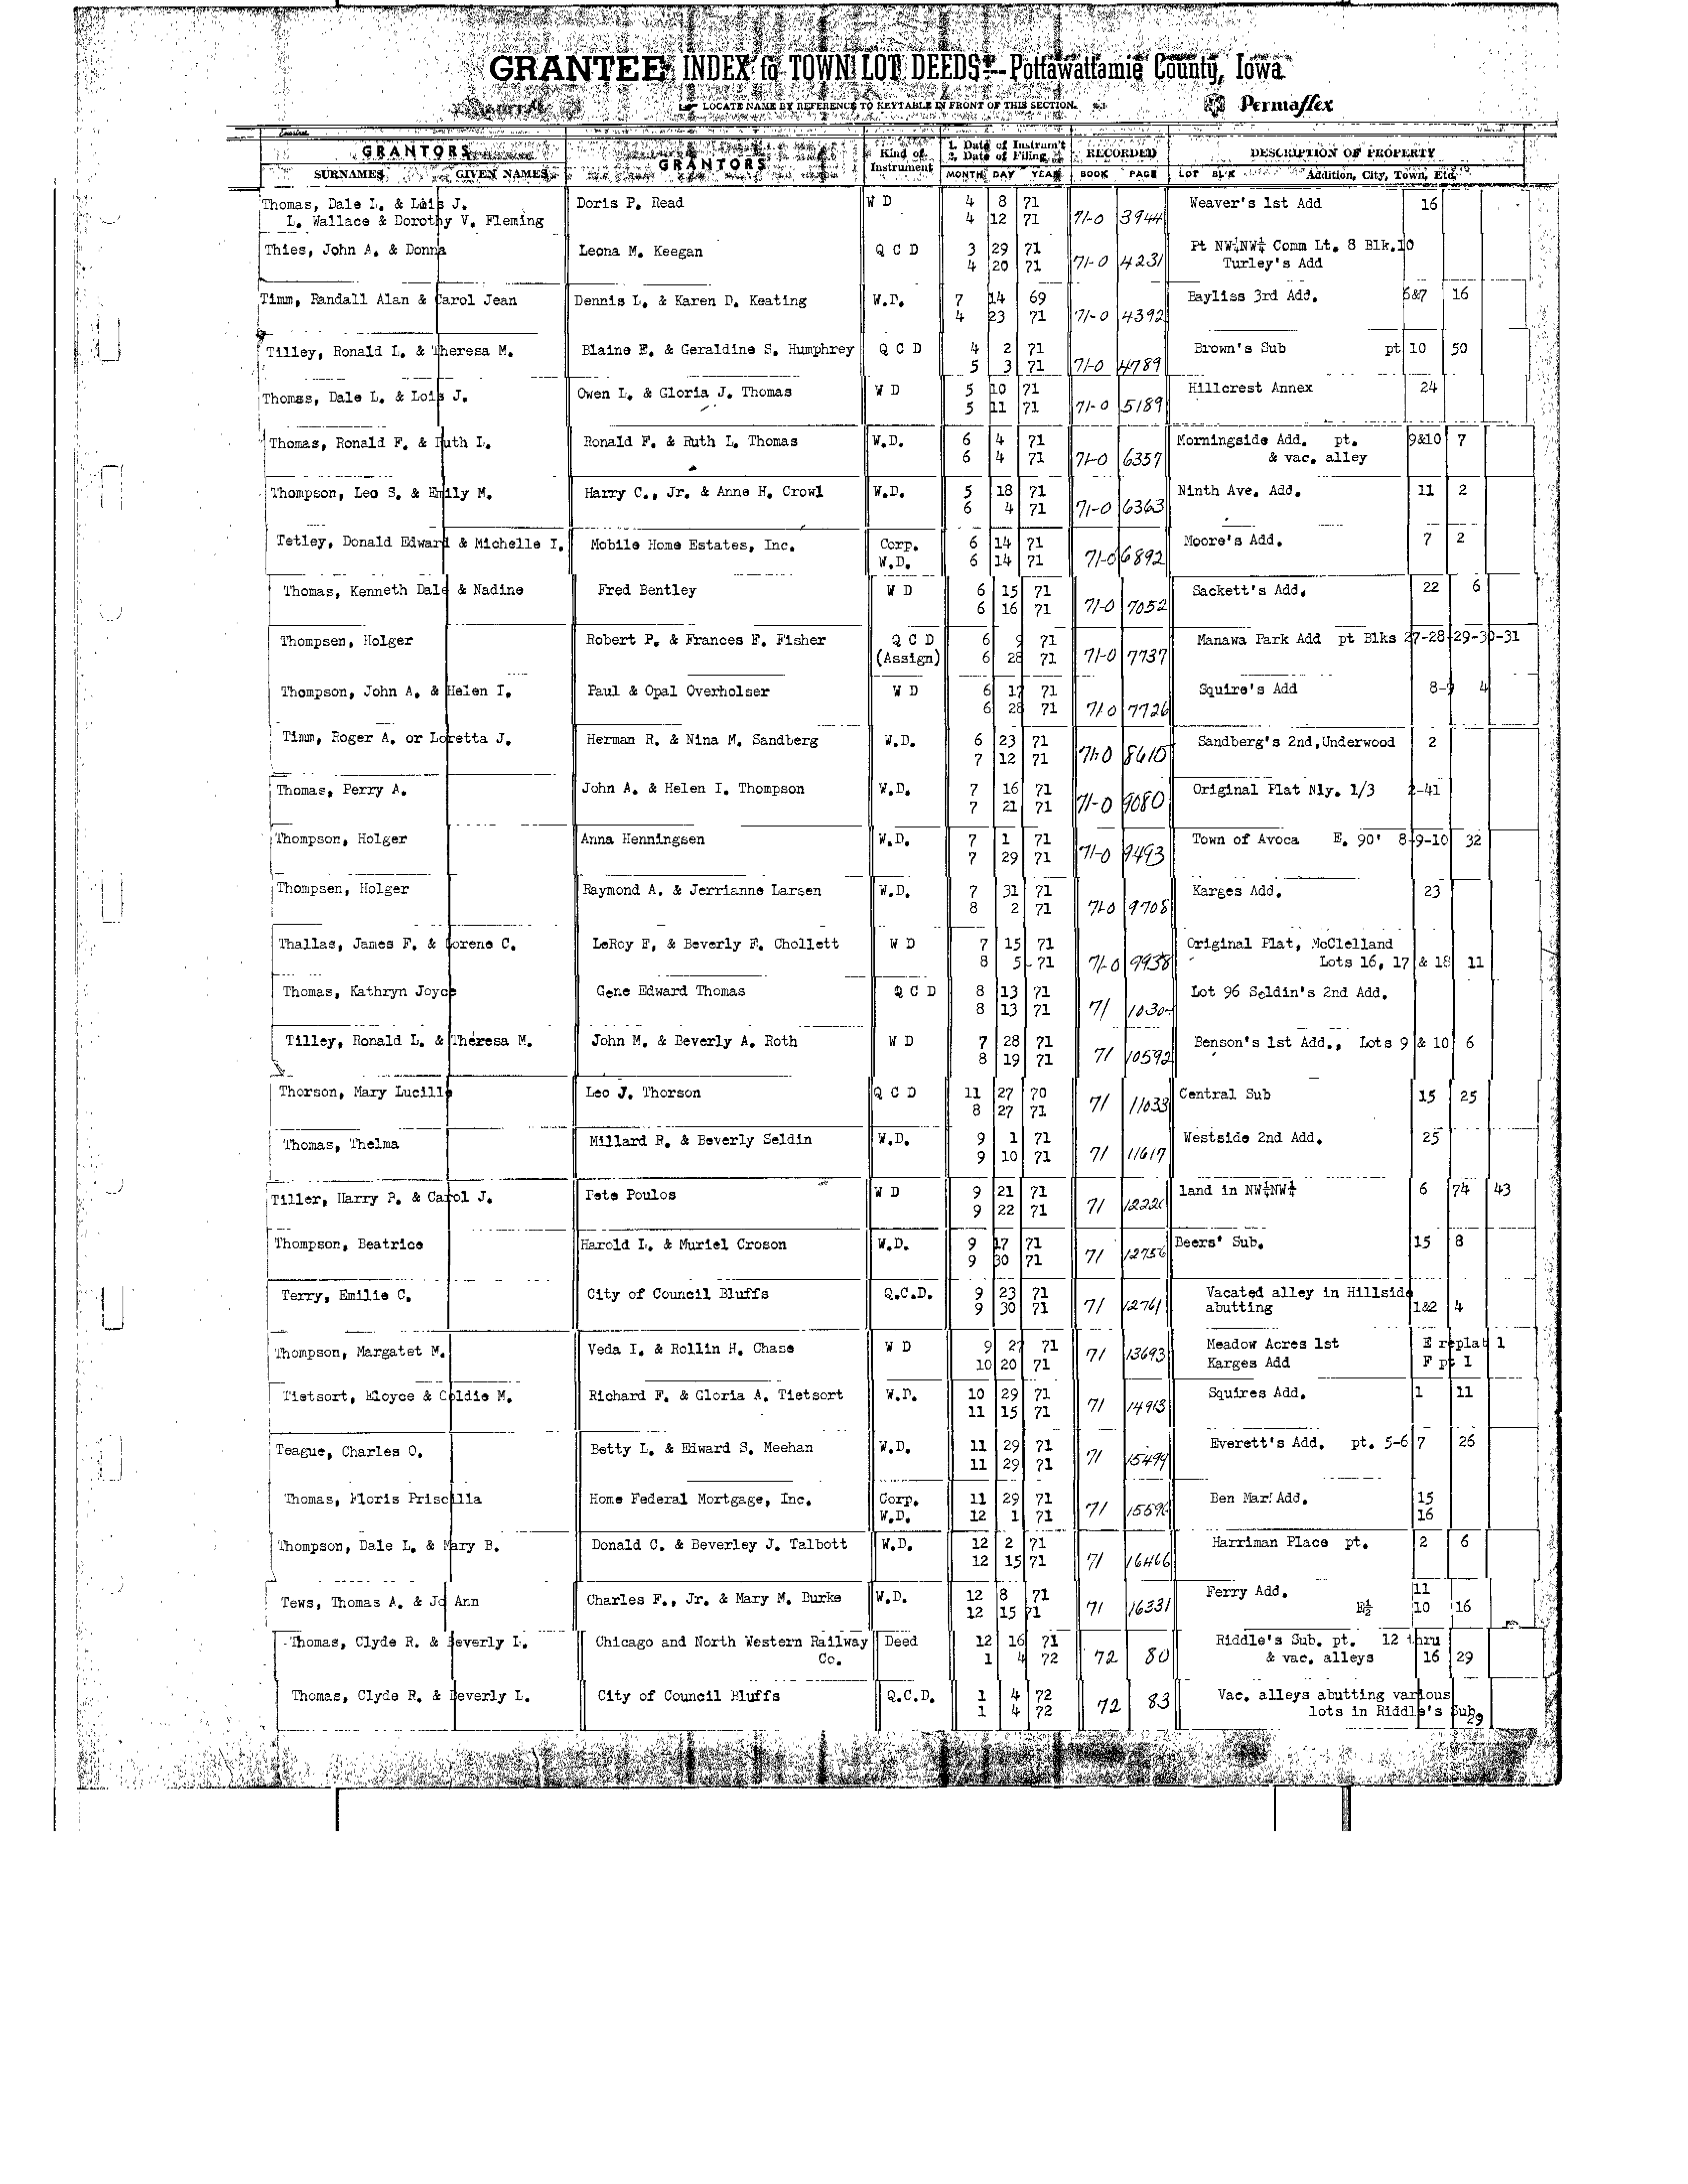 GRANTEE INDEX to TOWN LOT DEEDS - Pottawattamie County, Iowa
LOCATE NAME BY REFERENCE TO KEYTABLE IN FRONT OF THIS SECTION. Permaflex
GRANTORS GRANTORS Kind of Instrument 1. Date of Instrum't 2. Date of Filing RECORDED DESCRIPTION OF PROPERTY
SURNAMES GIVEN NAMES MONTH DAY YEAR BOOK PAGE LOT BL'K Addition, City, Town, Etc.
Thomas, Dale L. & Lois J. Doris P. Read W D 4 8 71 Weaver's 1st Add 16
L. Wallace & Dorothy V. Fleming 4 12 71 71-0 3944
Thies, John A. & Donna Leona M. Keegan Q C D 3 29 71 Pt NW¼NW¼ Comm Lt. 8 Blk.10
4 20 71 71-0 4231 Turley's Add
Timm, Randall Alan & Carol Jean Dennis L. & Karen D. Keating W.D. 7 14 69 Bayliss 3rd Add. 6&7 16
4 23 71 71-0 4392
Tilley, Ronald L. & Theresa M. Blaine E. & Geraldine S. Humphrey Q C D 4 2 71 Brown's Sub pt 10 50
5 3 71 71-0 4789
Thomas, Dale L. & Lois J. Owen L. & Gloria J. Thomas W D 5 10 71 Hillcrest Annex 24
5 11 71 71-0 5189
Thomas, Ronald F. & Ruth L. Ronald F. & Ruth L. Thomas W.D. 6 4 71 Morningside Add. pt. 9&10 7
6 4 71 71-0 6357 & vac. alley
Thompson, Leo S. & Emily M. Harry C., Jr. & Anne H. Crowl W.D. 5 18 71 Ninth Ave. Add. 11 2
6 4 71 71-0 6363
Tetley, Donald Edward & Michelle I. Mobile Home Estates, Inc. Corp. 6 14 71 Moore's Add. 7 2
W.D. 6 14 71 71-0 6892
Thomas, Kenneth Dale & Nadine Fred Bentley W D 6 15 71 Sackett's Add. 22 6
6 16 71 71-0 7052
Thompsen, Holger Robert P. & Frances F. Fisher Q C D 6 9 71 Manawa Park Add pt Blks 27-28-29-30-31
(Assign) 6 28 71 71-0 7737
Thompson, John A. & Helen I. Paul & Opal Overholser W D 6 17 71 Squire's Add 8-9 4
6 28 71 71-0 7726
Timm, Roger A. or Loretta J. Herman R. & Nina M. Sandberg W.D. 6 23 71 Sandberg's 2nd, Underwood 2
7 12 71 71-0 8615
Thomas, Perry A. John A. & Helen I. Thompson W.D. 7 16 71 Original Plat Nly. 1/3 2-41
7 21 71 71-0 9080
Thompson, Holger Anna Henningsen W.D. 7 1 71 Town of Avoca E. 90' 8-9-10 32
7 29 71 71-0 9493
Thompsen, Holger Raymond A. & Jerrianne Larsen W.D. 7 31 71 Karges Add. 23
8 2 71 71-0 9708
Thallas, James F. & Lorene C. LeRoy F, & Beverly E. Chollett W D 7 15 71 Original Plat, McClelland
8 5 71 71-0 9938 Lots 16, 17 & 18 11
Thomas, Kathryn Joyce Gene Edward Thomas Q C D 8 13 71 Lot 96 Seldin's 2nd Add.
8 13 71 71
Tilley, Ronald L. & Theresa M. John M. & Beverly A. Roth W D 7 28 71 Benson's 1st Add., Lots 9 & 10 6
8 19 71 71 10592
Thorson, Mary Lucille Leo J. Thorson Q C D 11 27 70 Central Sub 15 25
8 27 71 71 11033
Thomas, Thelma Millard R. & Beverly Seldin W.D. 9 1 71 Westside 2nd Add. 25
9 10 71 71 11617
Tiller, Harry P. & Carol J. Pete Poulos W D 9 21 71 land in NW¼NW¼ 6 74 43
9 22 71 71
Thompson, Beatrice Harold L. & Muriel Croson W.D. 9 17 71 Beers' Sub. 15 8
9 30 71 71 12756
Terry, Emilie C. City of Council Bluffs Q.C.D. 9 23 71 Vacated alley in Hillside
9 30 71 71 12761 abutting 1&2 4
Thompson, Margatet M. Veda I. & Rollin H. Chase W D 9 27 71 Meadow Acres 1st E replat 1
10 20 71 71 13693 Karges Add F pt 1
Tietsort, Eloyce & Goldie M. Richard F. & Gloria A. Tietsort W.D. 10 29 71 Squires Add. 1 11
11 15 71 71 14913
Teague, Charles O. Betty L. & Edward S. Meehan W.D. 11 29 71 Everett's Add. pt. 5-6 7 26
11 29 71 71 15499
Thomas, Floris Priscilla Home Federal Mortgage, Inc. Corp. 11 29 71 Ben Mar' Add. 15
W.D. 12 1 71 71 16
Thompson, Dale L. & Mary B. Donald C. & Beverley J. Talbott W.D. 12 2 71 Harriman Place pt. 2 6
12 15 71 71 16466
Tews, Thomas A. & Jo Ann Charles F., Jr. & Mary M. Burke W.D. 12 8 71 Ferry Add. 11
12 15 71 71 16331 E½ 10 16
Thomas, Clyde R. & Beverly L. Chicago and North Western Railway Deed 12 16 71 Riddle's Sub. pt. 12 thru
Co. 1 4 72 72 80 & vac. alleys 16 29
Thomas, Clyde R. & Beverly L. City of Council Bluffs Q.C.D. 1 4 72 Vac. alleys abutting various
1 4 72 72 83 lots in Riddle's Sub. 29